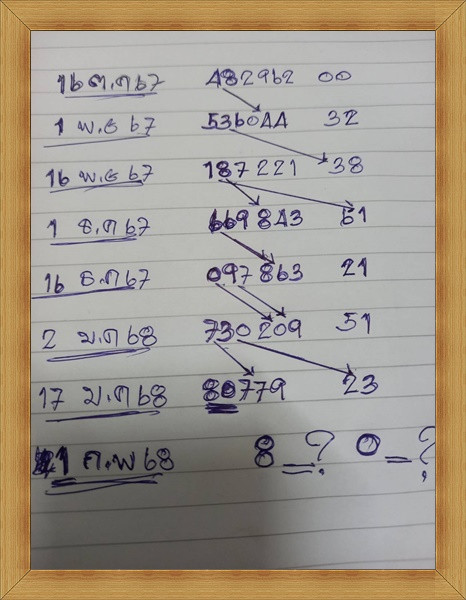 16 ต.ค 67 482962 00
1 พ.ย 67 536044 32
16 พ.ย 67 187221 38
1 ธ.ค 67 669843 51
16 ธ.ค 67 097863 21
2 ม.ค 68 730209 51
17 ม.ค 68 80779 23
1 ก.พ 68 8_? 0_?